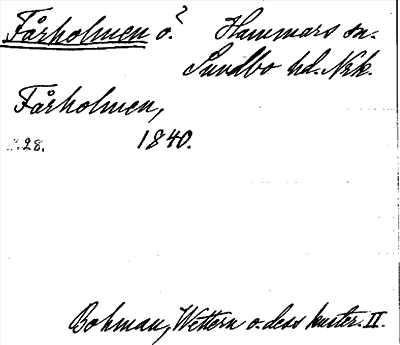 Fårholmen ö.? Hammars sn.
Sundbo hd. Nrk.
Fårholmen,
s. 28. 1840.
Bohman, Wettern o. dess kuster. II.